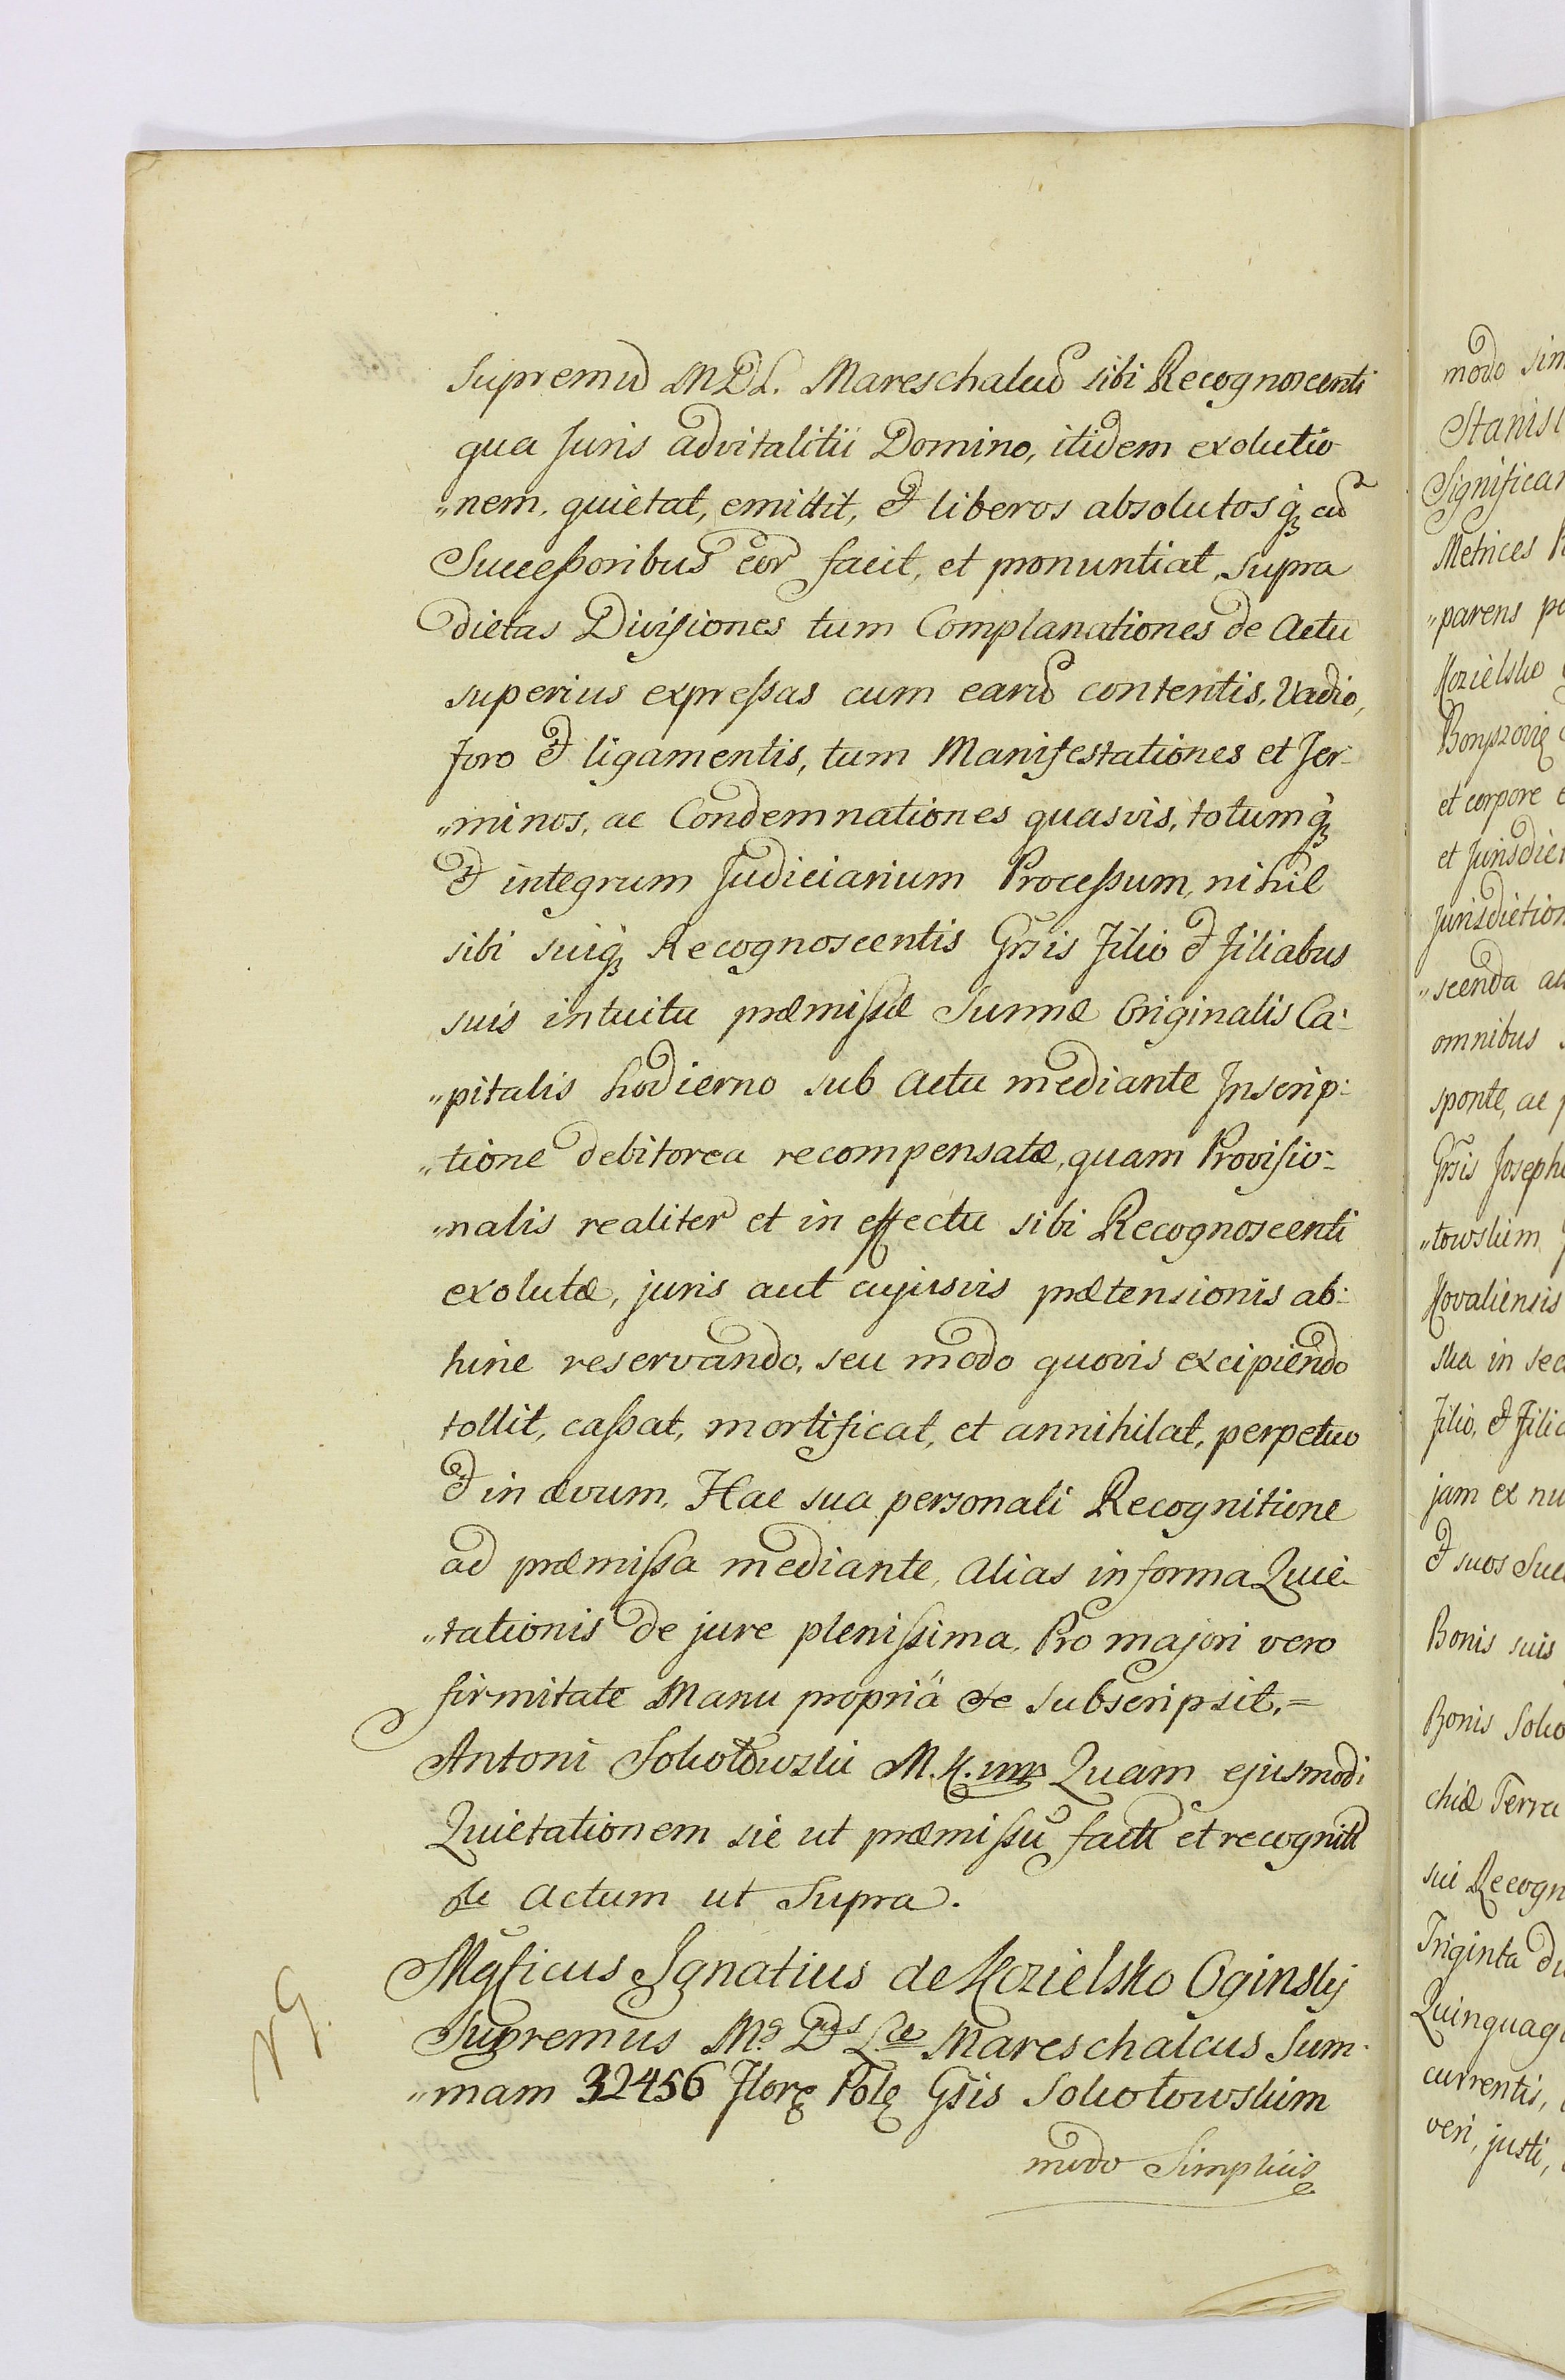 Supremũ MDL. Mareschalcũ sibi Recognoscenti
qua Juris advitalitii Domino, itidem exolutio
„nem, quietat, emittit, et liberos absolutos q̃ꝫ cũ
Successoribus eor facit, et pronuntiat, supra
dictas Divisiones tum Complanationes de Actu
superius expressas cum earũ contentis, Vadio,
foro et ligamentis, tum Manifestationes et Ter-
„minos, ac Condemnationes quasvis, totumq̃ꝫ
et integrum Judiciarium Processum, nihil
sibi suiq̃ꝫ Recognoscentis Grsis Filio et Filiabus
suis intuitu præmissæ Summæ Originalis Ca:
„pitalis hodierno sub Actu mediante Inscrip:
„tione debitorea recompensatæ, quam Provisio-
„nalis realiter et in effectu sibi Recognoscenti
exolutæ, juris aut cujusvis prætensionis ab:
hinc reservando, seu modo quovis excipiendo
tollit, cassat, mortificat, et annihilat, perpetuo
et in ævum, Hac sua personali Recognitione
ad præmissa mediante, Alias in forma Quie-
„tationis de jure plenissima, Pro majori vero
firmitate Manu propriâ se subscripsit.=
Antoni Sokołowski M.K. mp Quam ejusmodi
Quietationem sic ut præmissũ factt et recognitt
de Actum ut Supra.
Mgficus Ignatius de Kozielsko Oginskij
Supremus Mg Ds Lce Mareschalcus Sum-
„mam 32456 Florꝫ Polꝫ Gsis Sokołowskim
modo Simplicis
NG.
modo sim
Stanisl
Significan
Metrices R
„parens pe
Kozielsko
et corpore e
et Jurisdict
Jurisdiction
„scenda au
omnibus
sponte, ac p
Grsis Joseph
„towskim
Kovaliensis
ska in sec
Filio, et Filia
jam ex nu
et suos Suc
Bonis suis
Bonis Soko
chiæ Terra
sui Recogn
Triginta du
Quinquagi
currentis,
veri, justi,